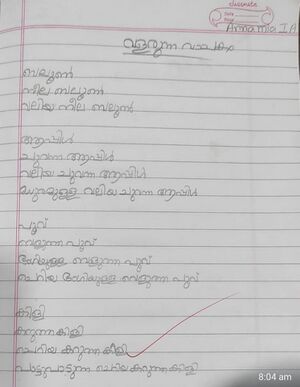 classmate
Date
Page
Annamia I.A
വളരുന്ന വാചകം
ബലൂൺ
നീല ബലൂൺ
വലിയ നീല ബലൂൺ
ആപ്പിൾ
ചുവന്ന ആപ്പിൾ
വലിയ ചുവന്ന ആപ്പിൾ
മധുരമുള്ള വലിയ ചുവന്ന ആപ്പിൾ
പൂവ്
വെളുന്ന പൂവ്
ഭംഗിയുള്ള വെളുന്ന പൂവ്
ചെറിയ ഭംഗിയുള്ള വെളുന്ന പൂവ്
കിളി
കറുന്ന കിളി
ചെറിയ കറുന്ന കിളി
പാട്ടുപാടുന്ന ചെറിയ കറുന്ന കിളി
8:04 am